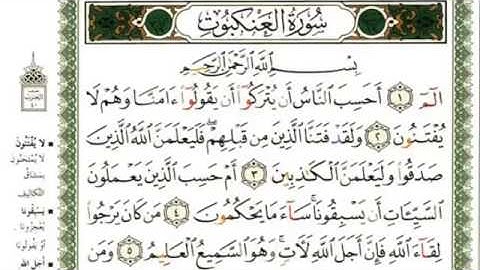 سُورَةُ الْعَنكَبُوتِ
بِسْمِ ٱللَّهِ ٱلرَّحْمَٰنِ ٱلرَّحِيمِ
الٓمٓ ١ أَحَسِبَ ٱلنَّاسُ أَن يُتْرَكُوٓا۟ أَن يَقُولُوٓا۟ ءَامَنَّا وَهُمْ لَا
يُفْتَنُونَ ٢ وَلَقَدْ فَتَنَّا ٱلَّذِينَ مِن قَبْلِهِمْ ۖ فَلَيَعْلَمَنَّ ٱللَّهُ ٱلَّذِينَ
صَدَقُوا۟ وَلَيَعْلَمَنَّ ٱلْكَٰذِبِينَ ٣ أَمْ حَسِبَ ٱلَّذِينَ يَعْمَلُونَ
ٱلسَّيِّـَٔاتِ أَن يَسْبِقُونَا ۚ سَآءَ مَا يَحْكُمُونَ ٤ مَن كَانَ يَرْجُوا۟
لِقَآءَ ٱللَّهِ فَإِنَّ أَجَلَ ٱللَّهِ لَءَاتٍ ۚ وَهُوَ ٱلسَّمِيعُ ٱلْعَلِيمُ ٥ وَمَن
لا يُفْتَنُونَ
لا يُمْتَحَنُونَ
بمشاقّ
التكاليف
يَسْبِقُونَا
يُعْجِزُونَا
أو يَفُوتُونَا
أجل الله